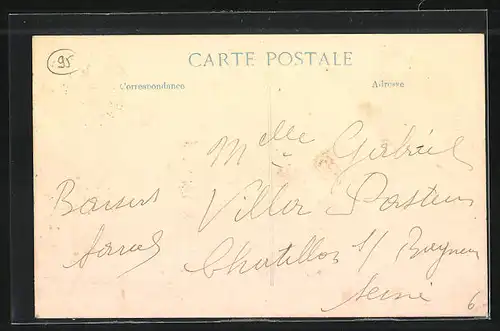 95
CARTE POSTALE
Correspondance
Adresse
Melle Gabriel
Baisers
Villa Pasteur
Chatillon s/ Bagneux
Seine
6